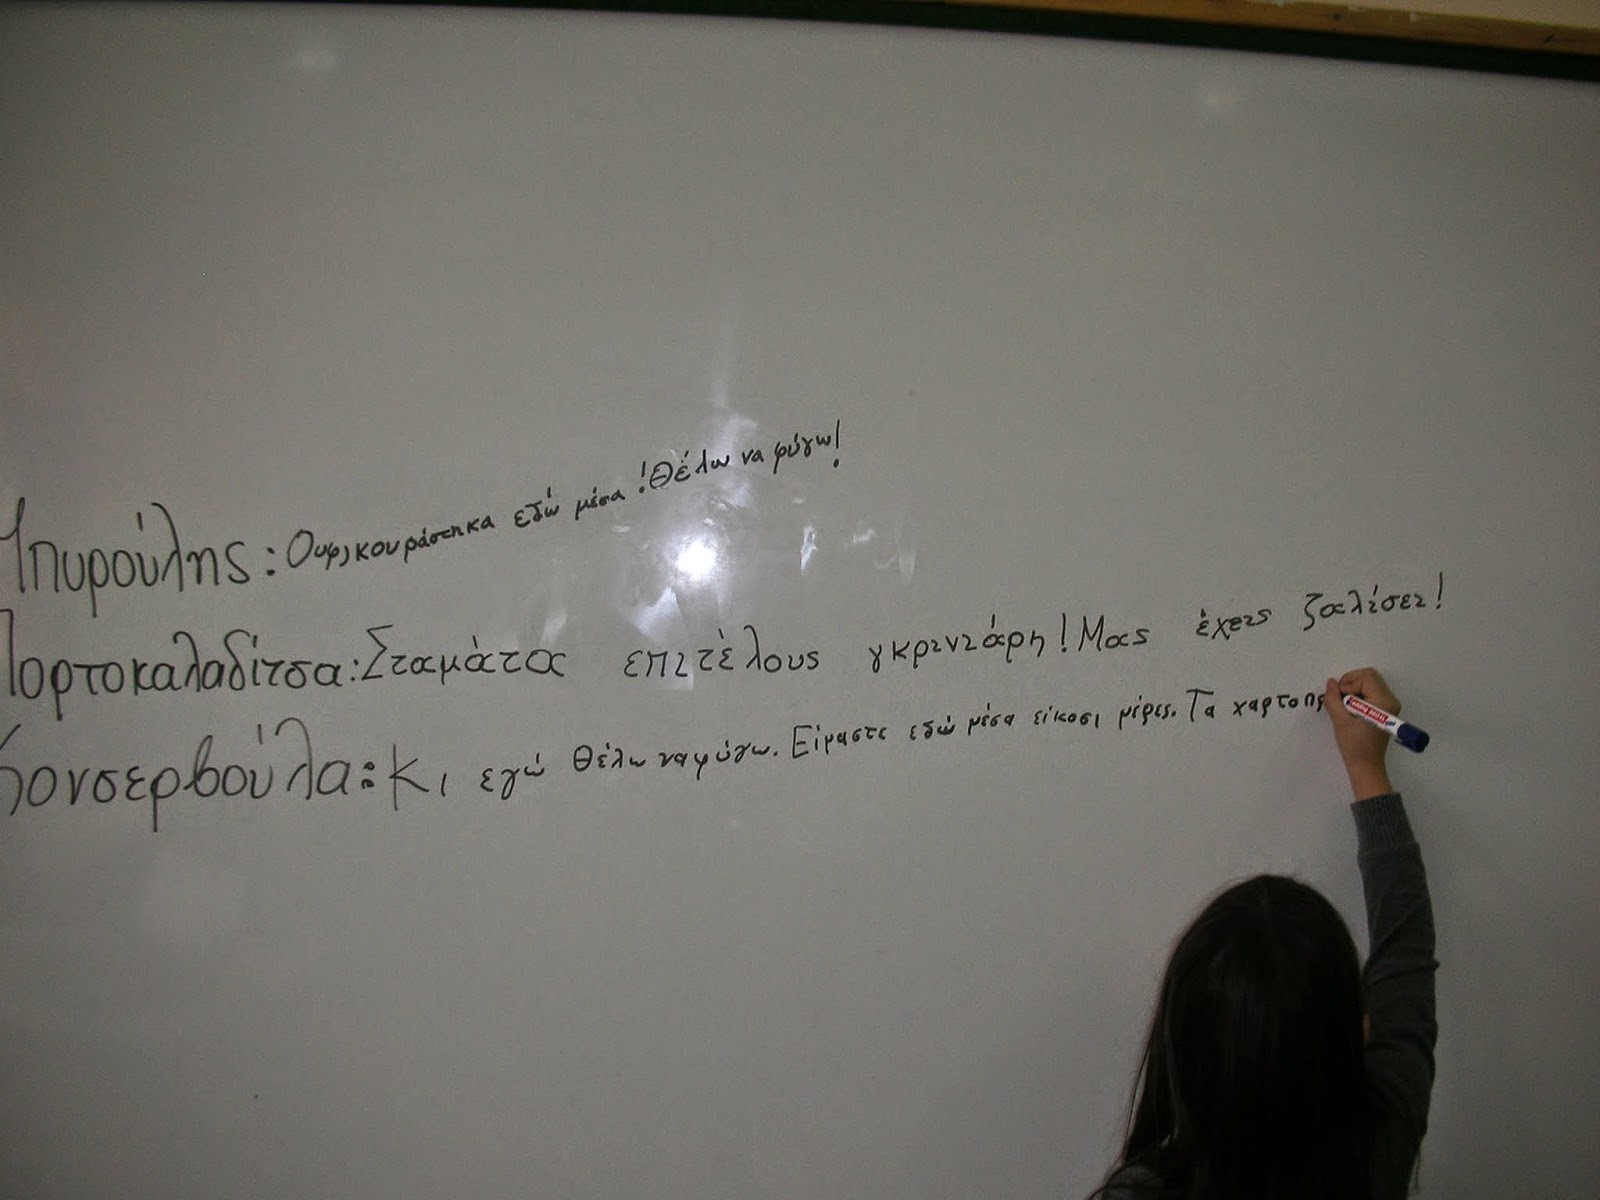 Μπυρούλης: Ουφ, κουράστηκα εδώ μέσα! Θέλω να φύγω!
Πορτοκαλαδίτσα: Σταμάτα επιτέλους γκρινιάρη! Μας έχεις ζαλίσει!
Κονσερβούλα: Κι εγώ θέλω να φύγω. Είμαστε εδώ μέσα είκοσι μέρες. Τα